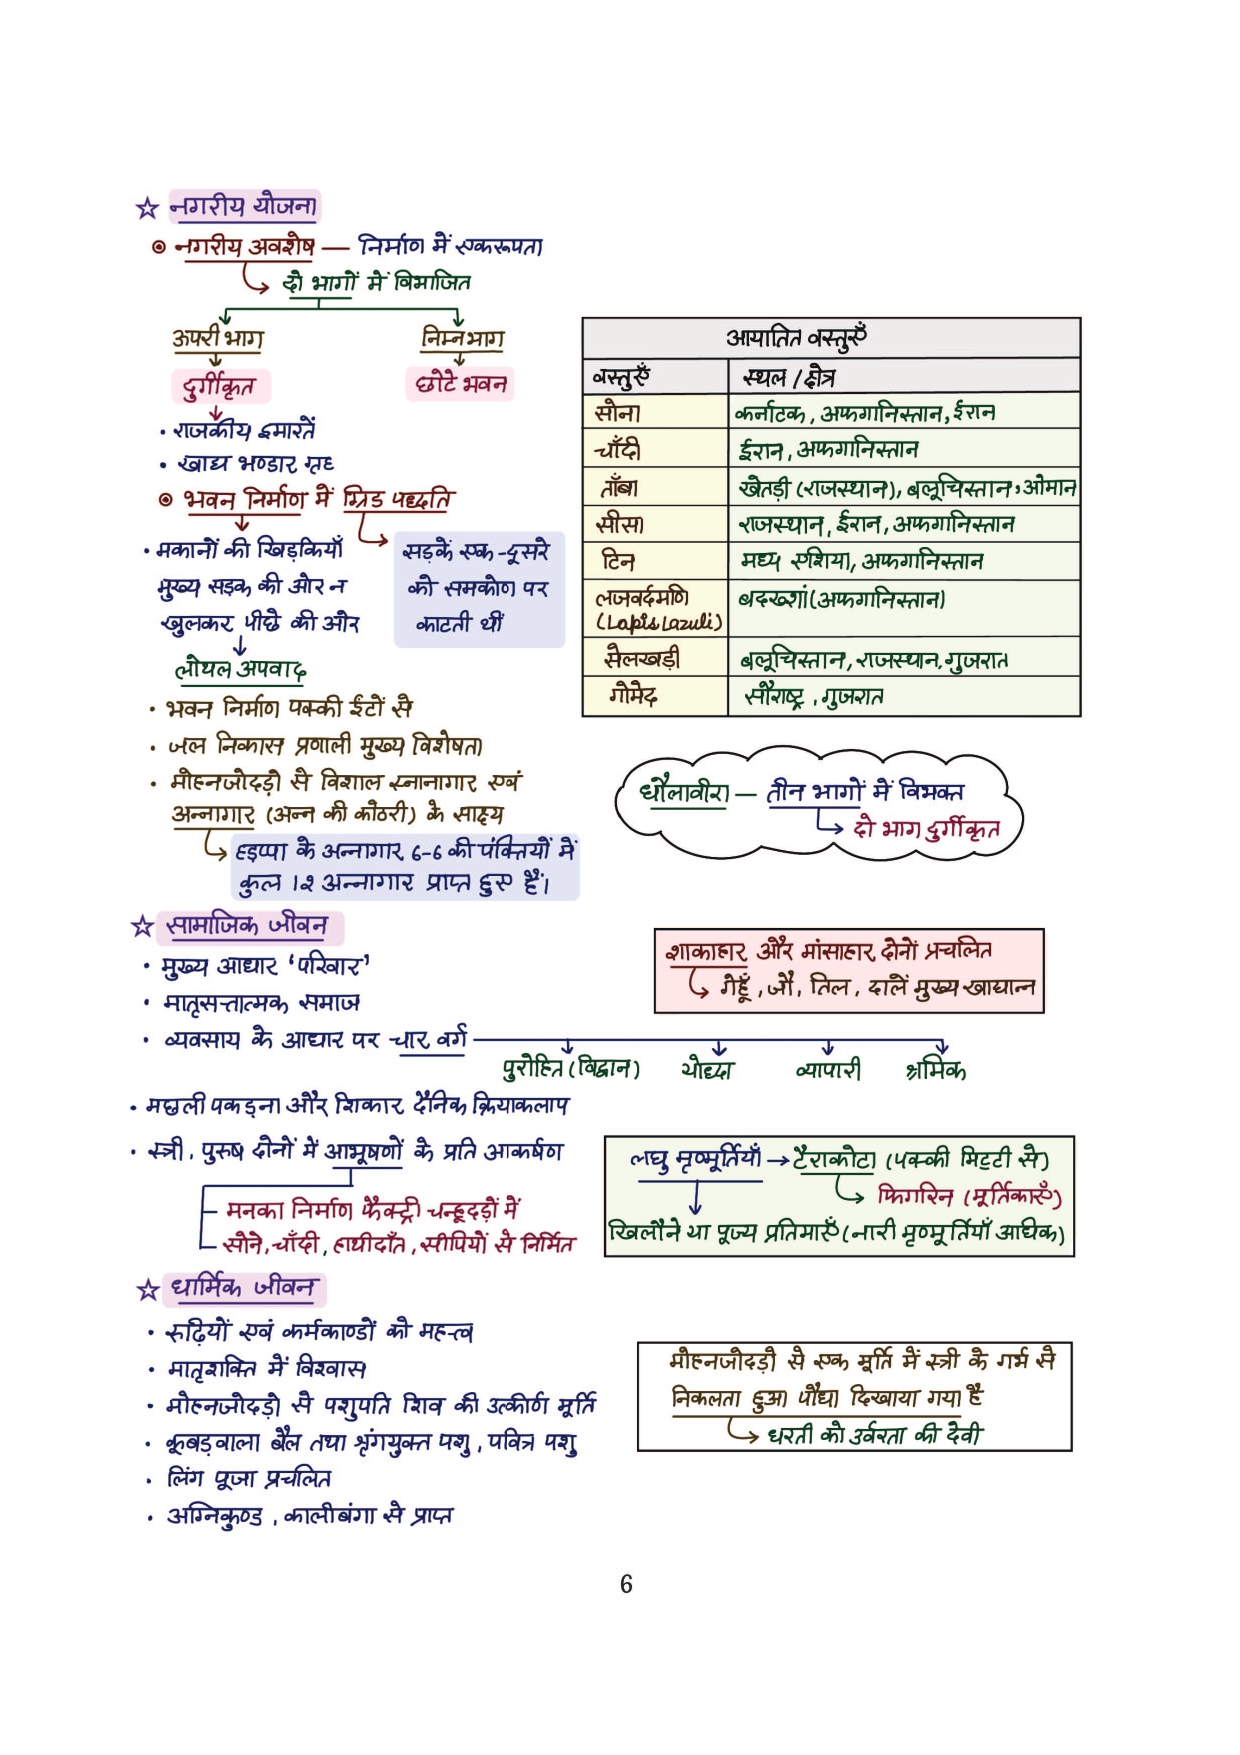 ☆ नगरीय योजना
नगरीय अवशेष — निर्माण में एकरूपता
दो भागों में विभाजित
ऊपरी भाग
निम्न भाग
दुर्गीकृत
छोटे भवन
• राजकीय इमारतें
• खाद्य भण्डार गृह
भवन निर्माण में ग्रिड पद्धति
• मकानों की खिड़कियाँ
मुख्य सड़क की ओर न
खुलकर पीछे की ओर
लोथल अपवाद
सड़कें एक-दूसरे
को समकोण पर
काटती थीं
• भवन निर्माण पक्की ईंटों से
• जल निकास प्रणाली मुख्य विशेषता
• मोहनजोदड़ो से विशाल स्नानागार एवं
अन्नागार (अन्न की कोठरी) के साक्ष्य
हड़प्पा के अन्नागार 6-6 की पंक्तियों में
कुल 12 अन्नागार प्राप्त हुए हैं।
आयातित वस्तुएँ
वस्तुएँ स्थल / क्षेत्र
सोना कर्नाटक, अफगानिस्तान, ईरान
चाँदी ईरान, अफगानिस्तान
ताँबा खेतड़ी (राजस्थान), बलूचिस्तान, ओमान
सीसा राजस्थान, ईरान, अफगानिस्तान
टिन मध्य एशिया, अफगानिस्तान
लाजवर्दमणि बदख्शां (अफगानिस्तान)
(Lapis Lazuli)
सेलखड़ी बलूचिस्तान, राजस्थान, गुजरात
गोमेद सौराष्ट्र, गुजरात
धौलावीरा — तीन भागों में विभक्त
दो भाग दुर्गीकृत
☆ सामाजिक जीवन
• मुख्य आधार 'परिवार'
• मातृसत्तात्मक समाज
• व्यवसाय के आधार पर चार वर्ग
पुरोहित (विद्वान) योद्धा व्यापारी श्रमिक
शाकाहार और मांसाहार दोनों प्रचलित
गेहूँ, जौ, तिल, दालें मुख्य खाद्यान्न
• मछली पकड़ना और शिकार दैनिक क्रियाकलाप
• स्त्री, पुरुष दोनों में आभूषणों के प्रति आकर्षण
मनका निर्माण फैक्ट्री चन्हूदड़ों में
सोने, चाँदी, हाथीदाँत, सीपियों से निर्मित
लघु मृण्मूर्तियाँ → टैराकोटा (पक्की मिट्टी से)
फिगरिन (मूर्तिकाएँ)
खिलौने या पूज्य प्रतिमाएँ (नारी मृण्मूर्तियाँ अधिक)
☆ धार्मिक जीवन
• रूढ़ियों एवं कर्मकाण्डों को महत्व
• मातृशक्ति में विश्वास
• मोहनजोदड़ो से पशुपति शिव की उत्कीर्ण मूर्ति
• कूबड़वाला बैल तथा श्रृंगयुक्त पशु, पवित्र पशु
• लिंग पूजा प्रचलित
• अग्निकुण्ड, कालीबंगा से प्राप्त
मोहनजोदड़ो से एक मूर्ति में स्त्री के गर्भ से
निकलता हुआ पौधा दिखाया गया है
धरती को उर्वरता की देवी
6